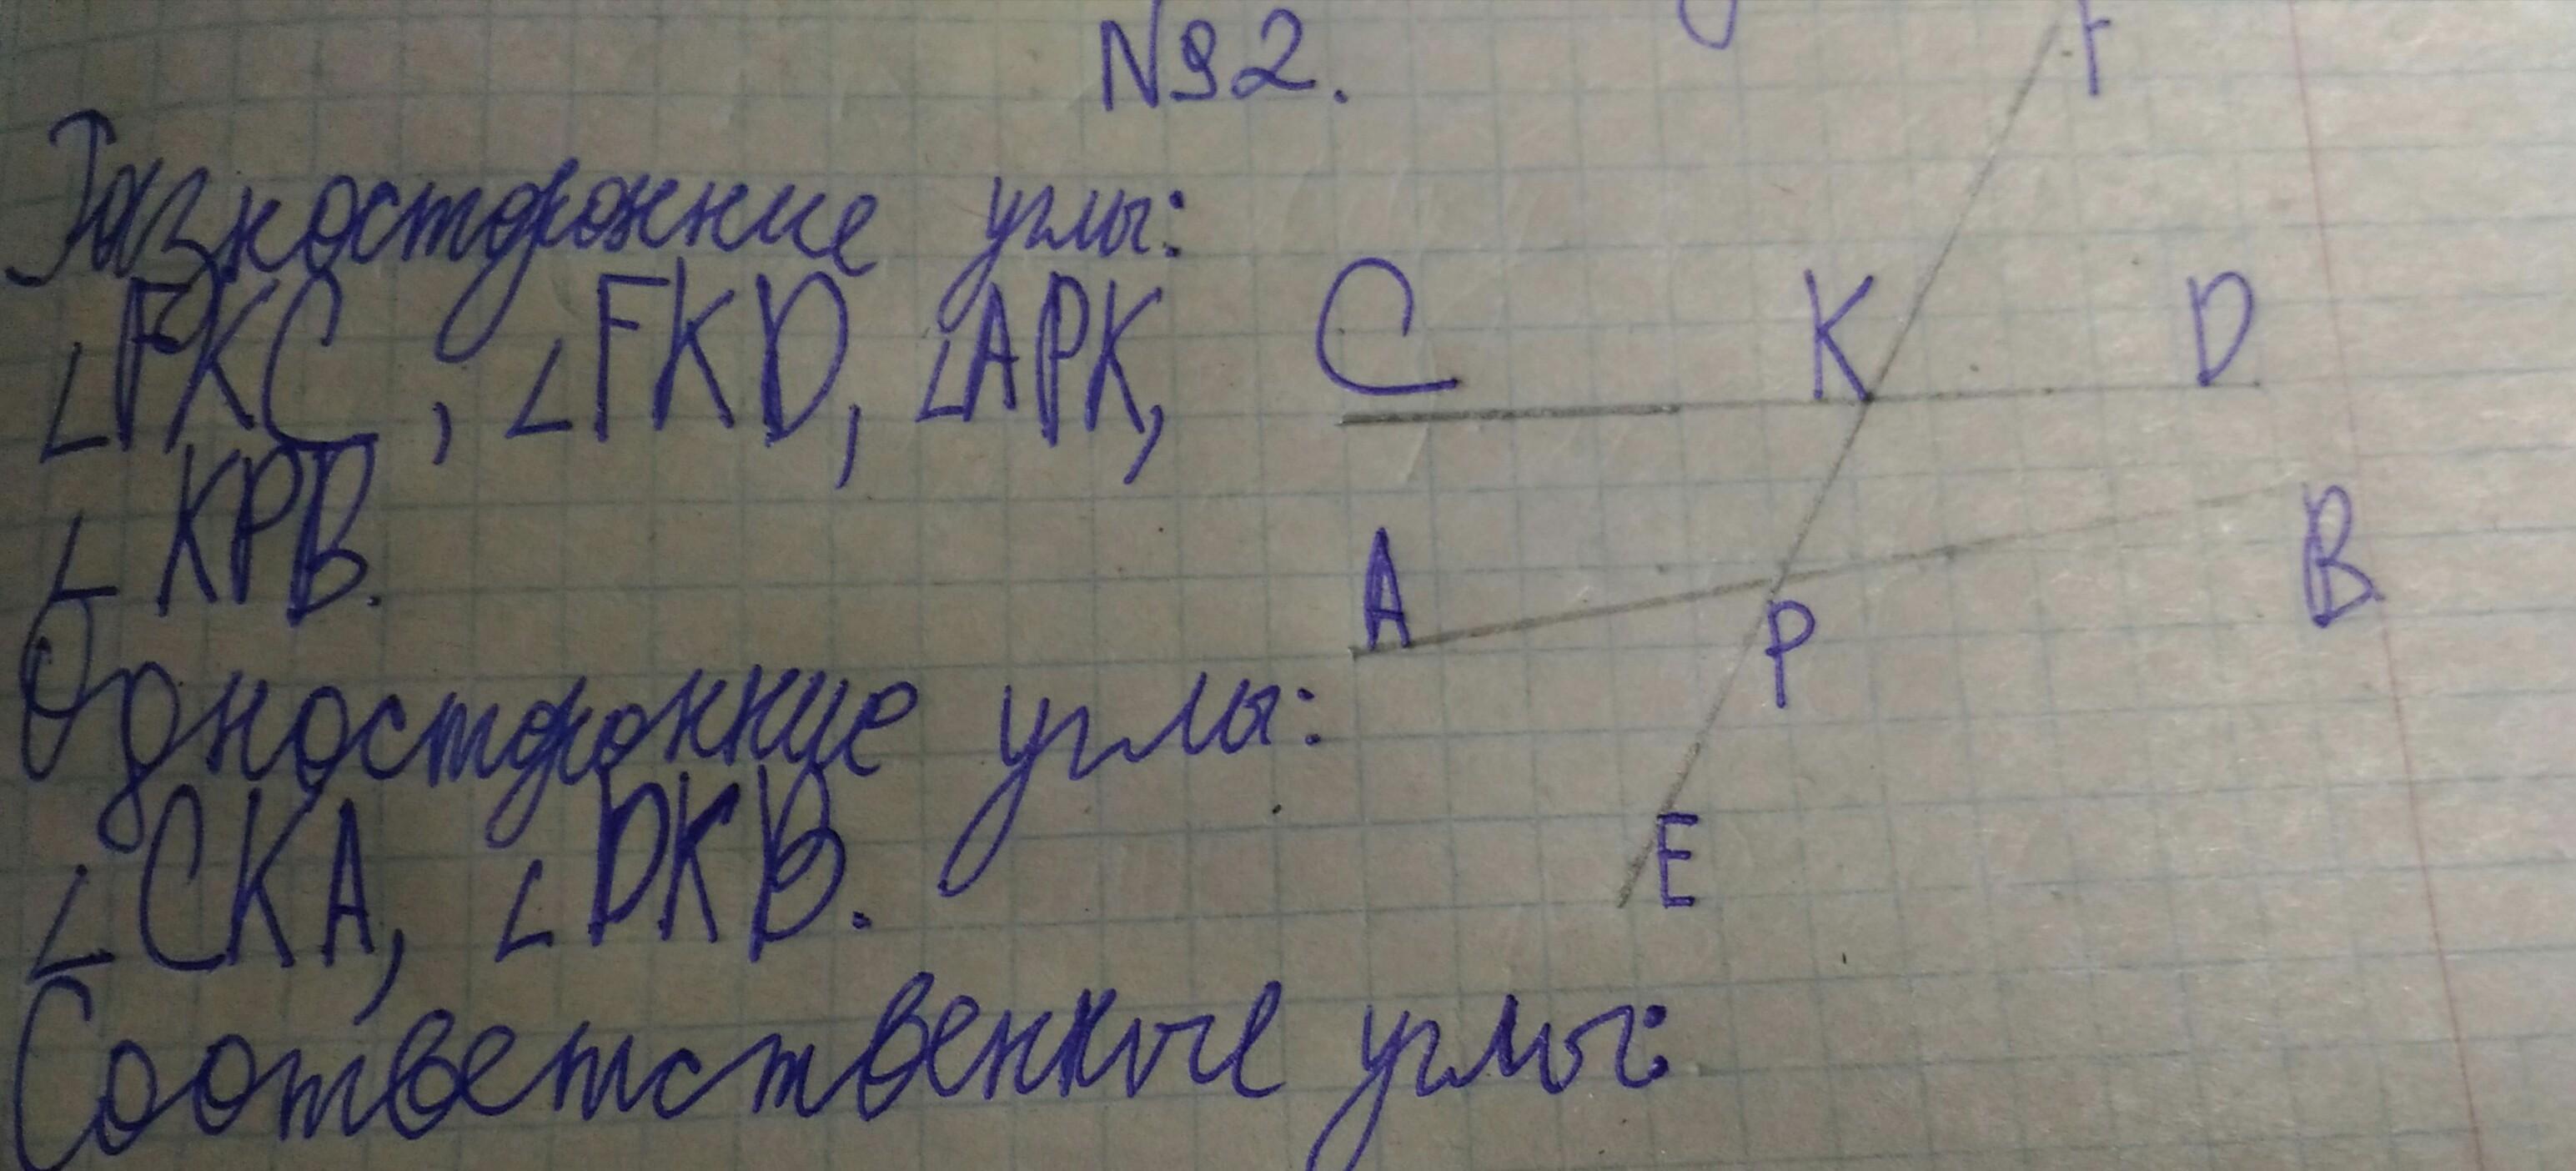 №2.
Разносторонние углы:
∠FKC, ∠FKD, ∠APK,
∠KPB.
Односторонние углы:
∠CKA, ∠DKB.
Соответственные углы:
F
C K D
A B
P
E